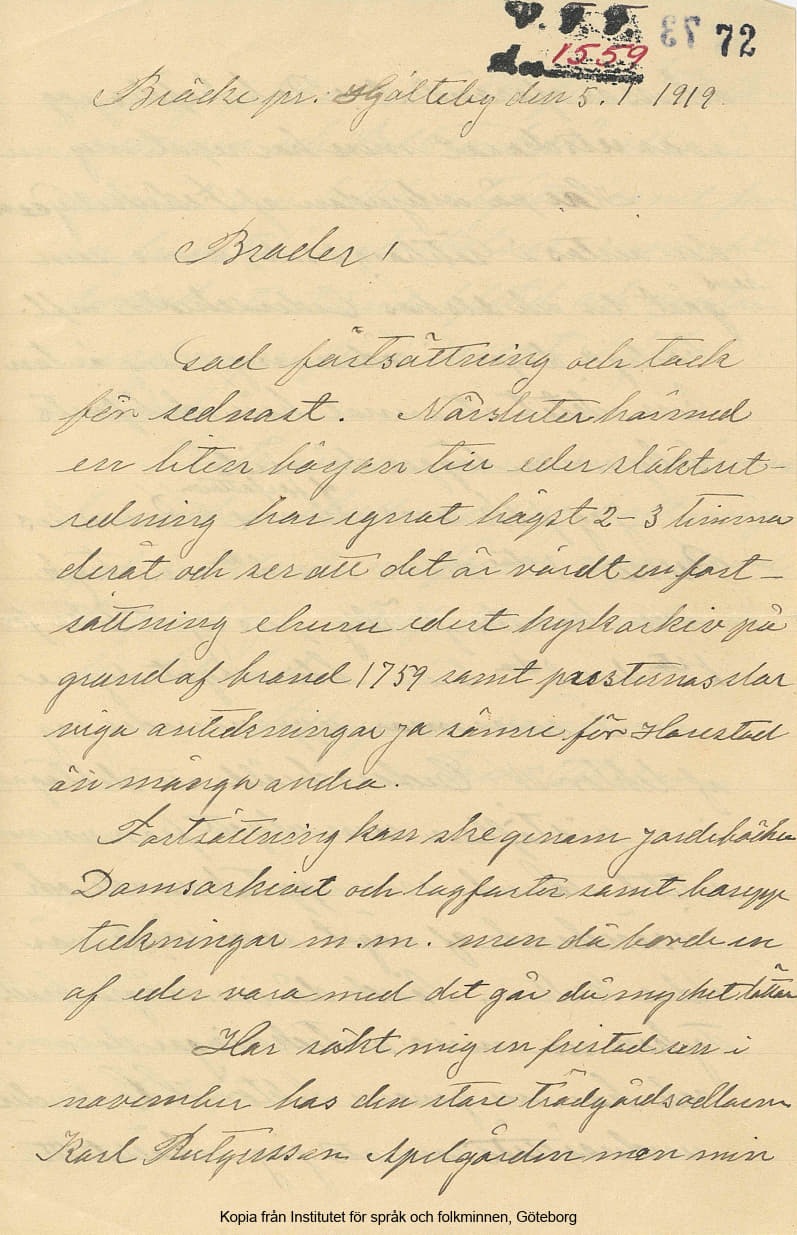 V.F.F.
1559
73 72
Bräcke pr. Hjälteby den 5. / 1 1919.
Broder!
God fortsättning och tack
för sednast. Närsluter härmed
en liten början till eder släktut-
redning har egnat högst 2-3 timmar
deråt och ser att det är värdt en fort-
sättning ehuru edert kyrkarkiv på
grund af brand 1759 samt prästernas slar
viga anteckningar ja sämre för Harestad
än många andra.
Fortsättning kan ske genom jordeböcker
Domsarkivet och lagfarter samt bouppt
teckningar m.m. men då borde en
af eder vara med det går då mycket lättare
Har sökt mig en fristad sen i
november hos den store trädgårdsodlaren
Karl Rutgersson Apelgården men min
Kopia från Institutet för språk och folkminnen, Göteborg